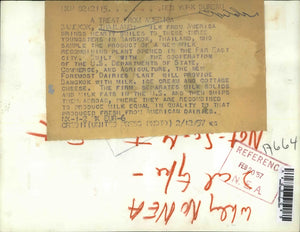 NEW YORK BUREAU
A TREAT FROM AMERICA
BANGKOK, THAILAND -- MILK FROM AMERICA
BRINGS HEARTY SMILES TO THESE THREE
YOUNGSTERS IN BANGKOK, THAILAND, WHO
SAMPLE THE PRODUCT OF A NEW MILK
RECOMBINING PLANT OPENED IN THE FAR EAST
CITY. BUILT WITH THE COOPERATION
OF THE U.S. DEPARTMENTS OF STATE,
COMMERCE, AND AGRICULTURE, THE NEW
FOREMOST DAIRIES PLANT WILL PROVIDE
BANGKOK WITH MILK, ICE CREAM AND COTTAGE
CHEESE. THE FIRM SEPARATES MILK SOLIDS
AND MILK FATS IN THE U.S. AND THEN SHIPS
THEM ABROAD, WHERE THEY ARE RECOMBINED
TO PRODUCE MILK EQUAL IN QUALITY TO THAT
PRODUCED FRESH FROM AMERICAN DAIRIES.
2/12/57
19664
REFERENCE
FEB 57
N.E.A
Why No NEA